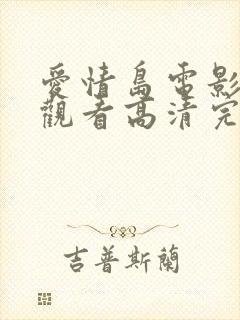 愛情島電影
觀看高清完
吉普斯蘭